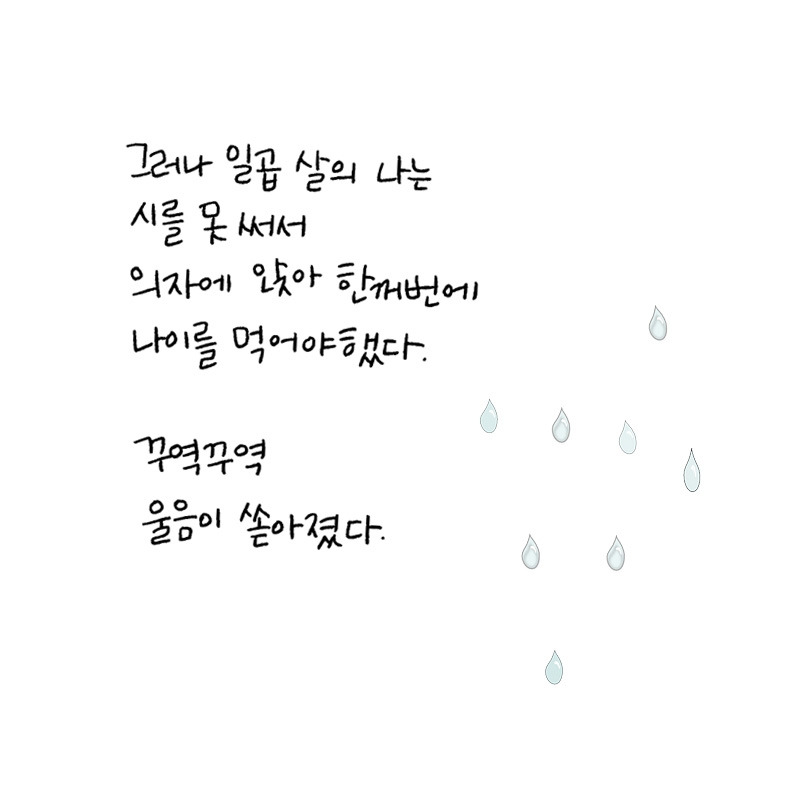 그러나 일곱 살의 나는
시를 못 써서
의자에 앉아 한꺼번에
나이를 먹어야했다.
꾸역꾸역
울음이 쏟아졌다.